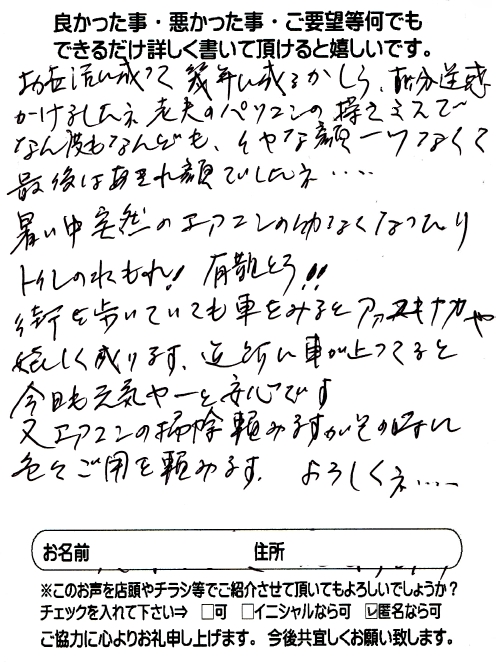 良かった事・悪かった事・ご要望等何でも
できるだけ詳しく書いて頂けると嬉しいです。
お世話に成って幾年に成るかしら、随分迷惑
かけましたネ 老夫のパソコンの操作ミスで
なん度もなんども、イヤな顔一つなくて
最後はあきれ顔でしたネ・・・・
暑い中突然のエアコンの動なくなったり
トイレの水もれ! 有難とう!!
街を歩いていても車をみるとアッ
嬉しく成ります、近所に車が止ってると
今日も元気ヤーと安心です
又エアコンの掃除頼みますがその時に
色々ご用を頼みます、 よろしくネ・・・・
お名前 住所
※このお声を店頭やチラシ等でご紹介させて頂いてもよろしいでしょうか?
チェックを入れて下さい⇒ □可 □イニシャルなら可 ☑匿名なら可
ご協力に心よりお礼申し上げます。 今後共宜しくお願い致します。